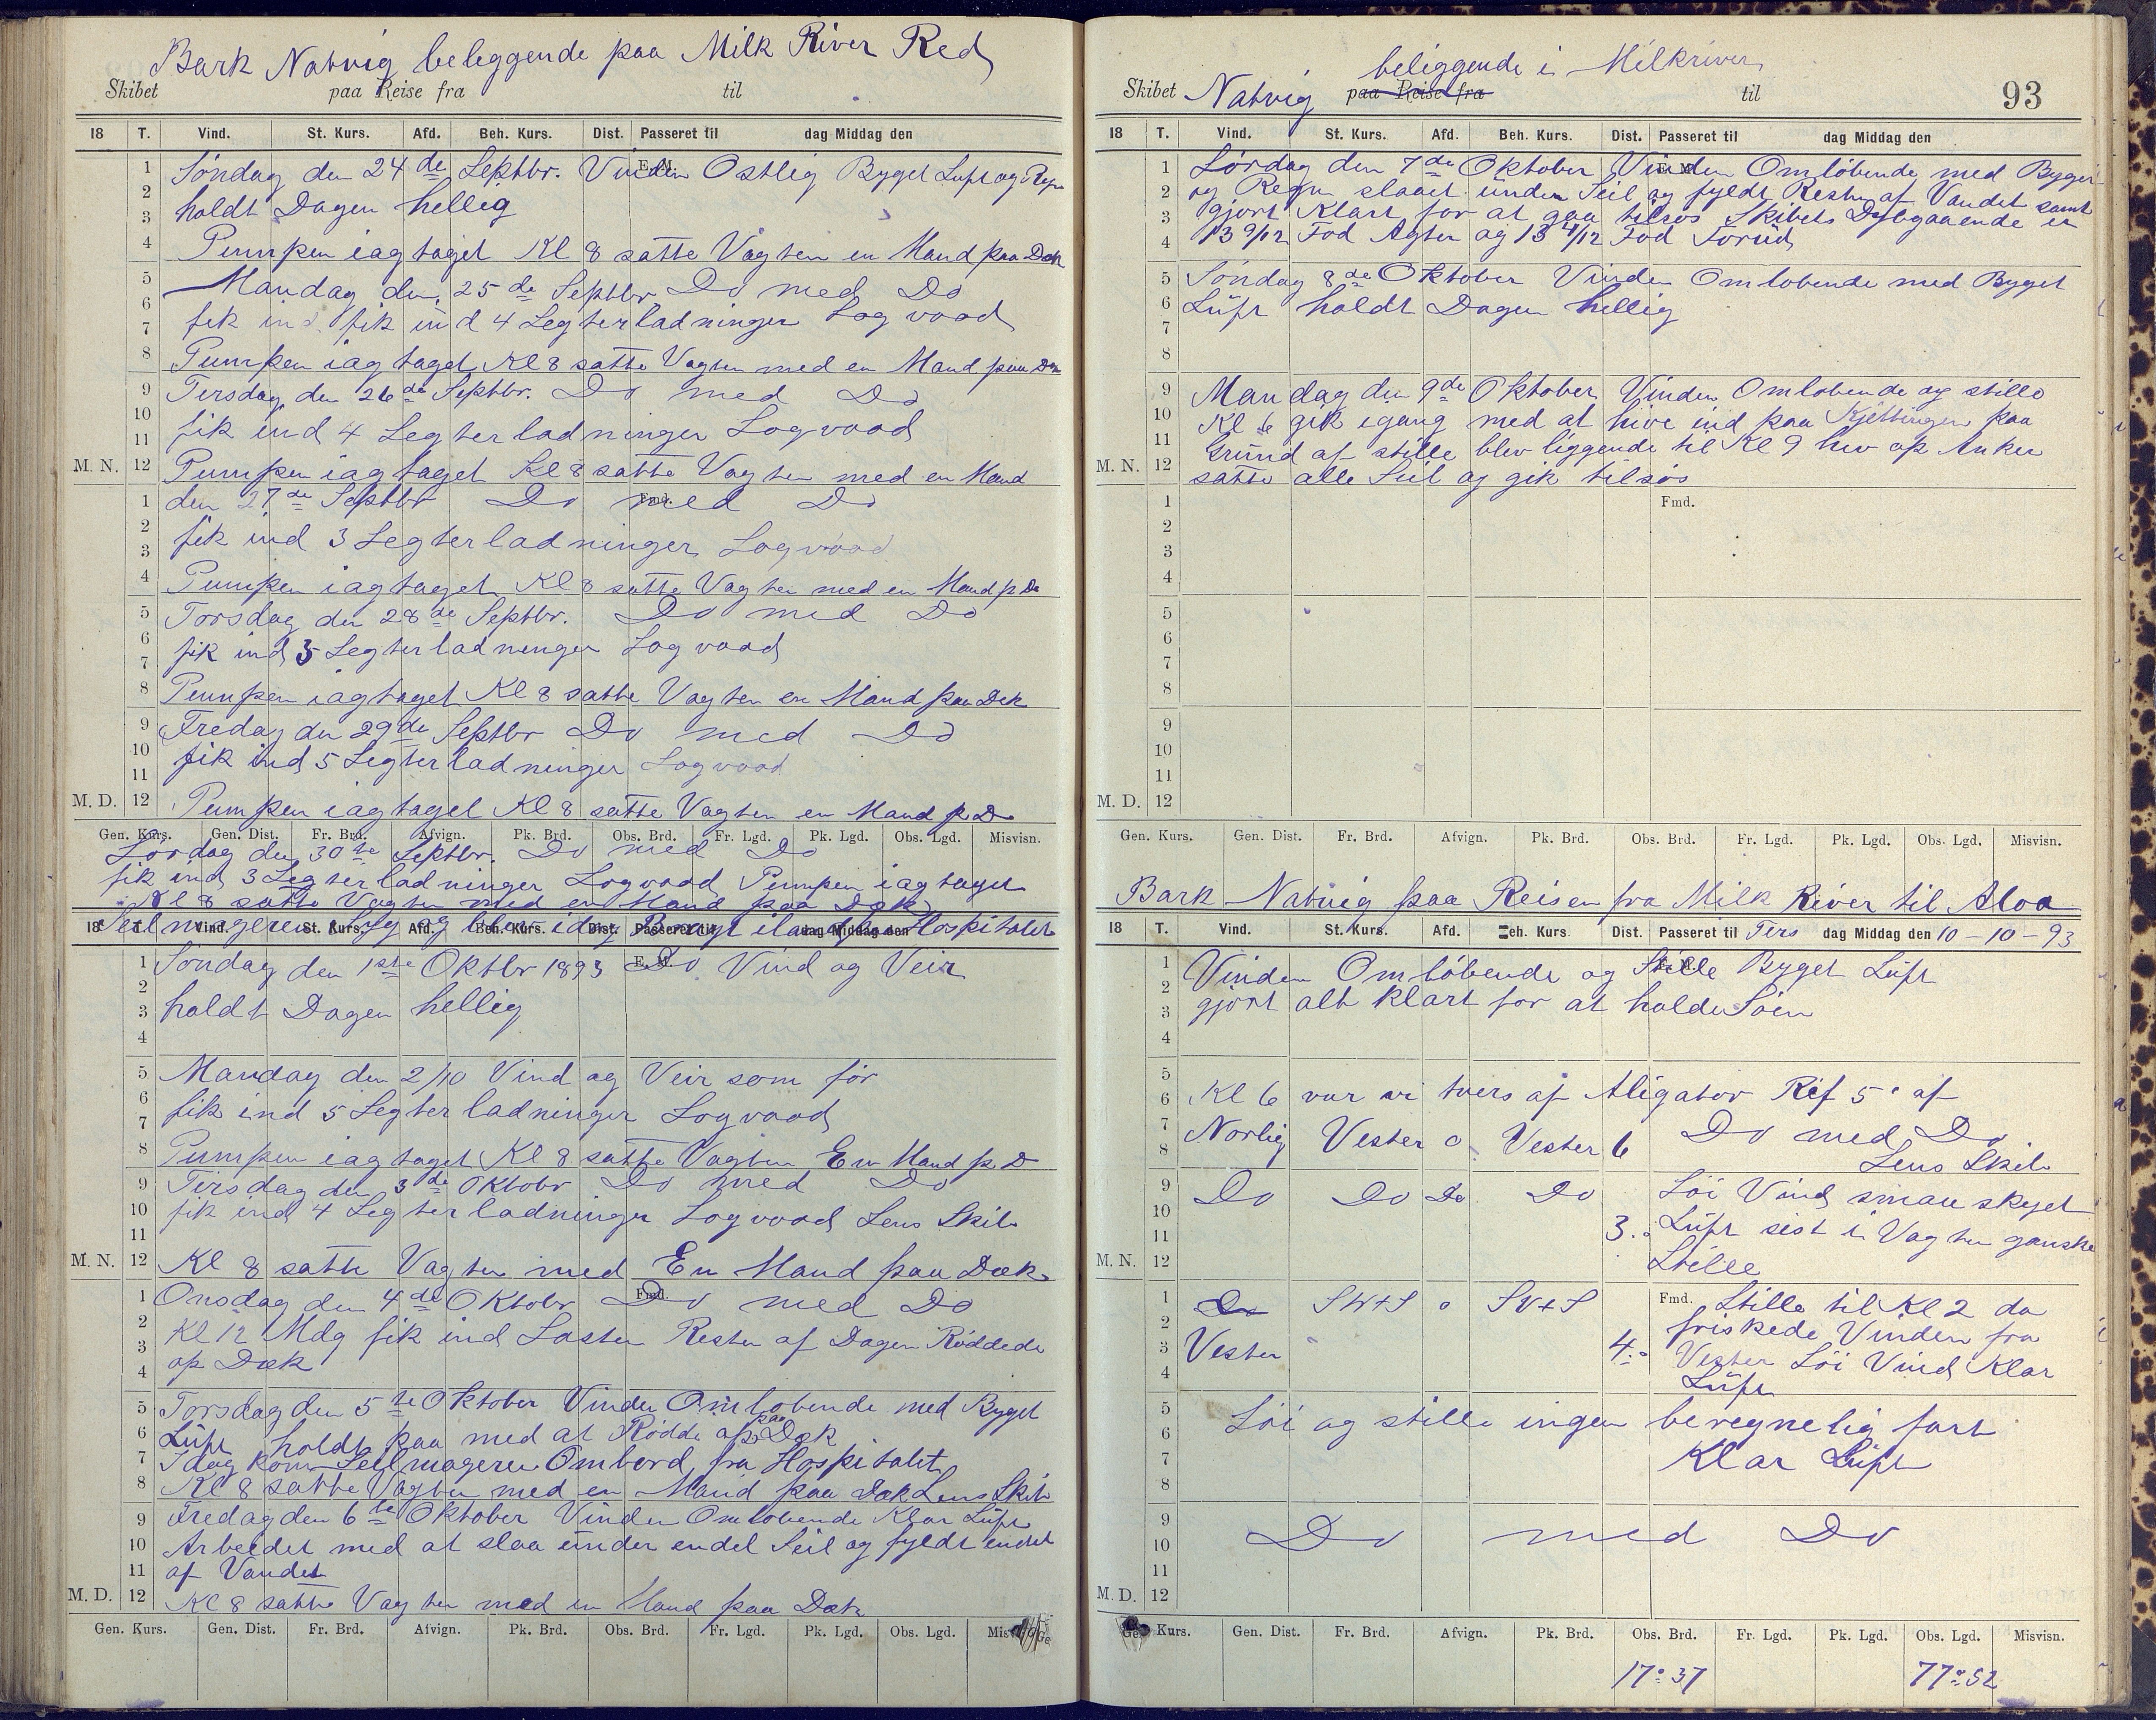 Bark Natvig beleggende paa Milk River Red
Skibet paa Reise fra til
18 T. Vind. St. Kurs. Afd. Beh. Kurs. Dist. Passeret til dag Middag den
E. M.
1 Söndag den 24de Septbr. Vinden Ostlig Byget Luft og Regn
2
3 holdt Dagen hellig
4 Pumpen iagtaget Kl 8 satte Vagten en Mand paa Dæk
5 Mandag den 25de Septbr Do med Do
6
7 fik ind fik ind 4 Legterladninger Logvood
8 Pumpen iagtaget Kl 8 satte Vagten med en Mand paa Dæk
9 Tirsdag den 26de Septbr. Do med Do
10
11 fik ind 4 Legterladninger Logvood
M. N. 12 Pumpen iagtaget Kl 8 satte Vagten med en Mand
Fmd.
1 den 27de Septbr Do med Do
2
3 fik ind 3 Legterladninger Logvood
4 Pumpen iagtaget Kl 8 satte Vagten med en Mand p Do
5 Torsdag den 28de Septbr. Do med Do
6
7 fik ind 5 Legterladninger Logvood
8 Pumpen iagtaget Kl 8 satte Vagten en Mand paa Dek
9 Fredag den 29de Septbr Do med Do
10
11 fik ind 5 Legterladninger Logvood
M. D. 12 Pumpen iagtaget Kl 8 satte Vagten en Mand p D
Gen. Kurs. Gen. Dist. Fr. Brd. Afvign. Pk. Brd. Obs. Brd. Fr. Lgd. Pk. Lgd. Obs. Lgd. Misvisn.
Lördag den 30te Septbr. Do med Do
fik ind 3 Legterladninger Logvood Pumpen iagtaget
Kl 8 satte Vagten med en Mand paa Dæk
Seilmageren Syg og blev idag bragt iland paa Hospitalet
18 T. Vind. St. Kurs. Afd. Beh. Kurs. Dist. Passeret til dag Middag den
E. M.
1 Söndag den 1ste Oktbr 1893 Do Vind og Veir
2
3 holdt Dagen hellig
4
5 Mandag den 2/10 Vind og Veir som för
6
7 fik ind 5 Legterladninger Logvood
8 Pumpen iagtaget Kl 8 satte Vagten En Mand p D
9 Tirsdag den 3de Oktobr Do med Do
10 fik ind 4 Legterladninger Logvood Lens Skib
11
M. N. 12 Kl 8 satte Vagten med En Mand paa Dæk
Fmd.
1 Onsdag den 4de Oktobr Do med Do
2
3 Kl 12 Mdg fik ind Lasten Resten af Dagen Röddede
4 op Dæk
5 Torsdag den 5te Oktober Vinden Omlobende med Byget
6 Luft holdt paa med at Rödde op paa Dæk
7 Idag kom Seilmageren Ombord fra Hospitalet
8 Kl 8 satte Vagten med en Mand paa Dæk Lens Skib
9 Fredag den 6te Oktober Vinden Omlobende Klar Luft
10 Arbeidet med at slaa under endel Seil og fyldt endel
11 af Vandet
M. D. 12 Kl 8 satte Vagten med en Mand paa Dæk
Gen. Kurs. Gen. Dist. Fr. Brd. Afvign. Pk. Brd. Obs. Brd. Fr. Lgd. Pk. Lgd. Obs. Lgd.
beliggende i Milkriver
Skibet Natvig paa Reise fra til 93
18 T. Vind. St. Kurs. Afd. Beh. Kurs. Dist. Passeret til dag Middag den
E. M.
1 Lördag den 7de Oktober Vinden Omlöbende med Byger
2 og Regn slaaet under Seil og fyldt Resten af Vandet samt
3 gjort Klart for at gaa tilsös Skibets Dybgaaende er
4 13 9/12 Fod Agter og 13 4/12 Fod Forud
5 Söndag 8de Oktober Vinden Omlobende med Byget
6 Luft holdt Dagen hellig
7
8
9 Mandag den 9de Oktober Vinden Omlobende og stille
10 Kl 6 gik igang med at hive ind paa Kjettingen paa
11 Grund af stille blev liggende til Kl 9 hev op Anker
M. N. 12 satte alle Seil og gik tilsös
Fmd.
1
2
3
4
5
6
7
8
9
10
11
M. D. 12
Gen. Kurs. Gen. Dist. Fr. Brd. Afvign. Pk. Brd. Obs. Brd. Fr. Lgd. Pk. Lgd. Obs. Lgd. Misvisn.
Bark Natvig paa Reisen fra Milk River til Aloa
18 T. Vind. St. Kurs. Afd. Beh. Kurs. Dist. Passeret til Tirs dag Middag den 10-10-93
1 Vinden Omlöbende og Stille Byget Luft
2
3 gjort alt klart for at holde Söen
4
5
6 Kl 6 var vi tvers af Aligator Rif 5' af
7 Norlig Vester o Vester 6 Do med Do
8 Lens Skib
9 Do Do Do Do Löi Vind smaa skyet
10
11 3. Luft sist i Vagten ganske
M. N. 12 Stille
1 Do SWtS o SVtS Fmd. Stille til Kl 2 da
2 friskede Vinden fra
3 Vesten 4. Vester Löi Vind Klar
4 Luft
5 Löi og stille ingen beregnelig fart
6
7 Klar Luft
8
9
10 Do med Do
11
M. D. 12
Kurs. Gen. Dist. Fr. Brd. Afvign. Pk. Brd. Obs. Brd. Fr. Lgd. Pk. Lgd. Obs. Lgd. Misvisn.
17° 37 77° 52